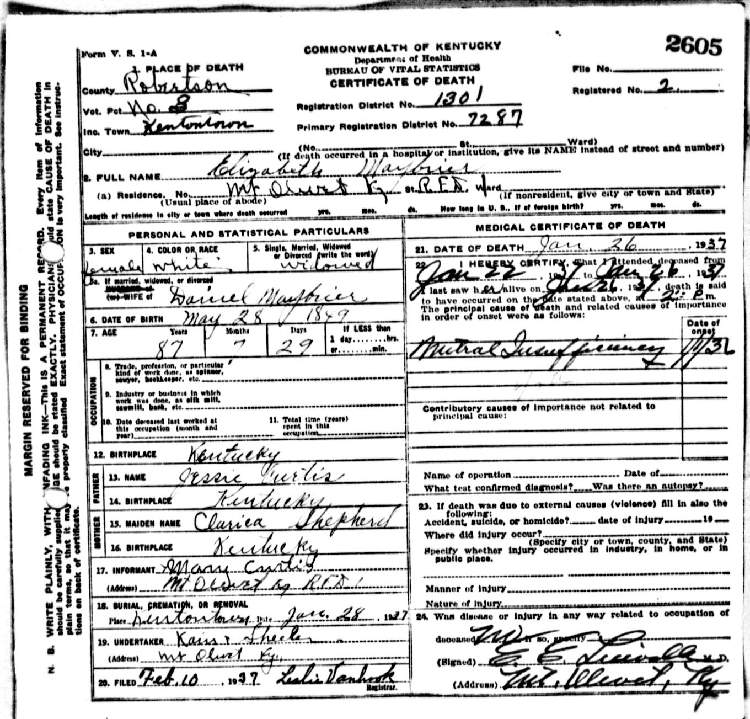 2605
Form V. S. 1-A
COMMONWEALTH OF KENTUCKY
Department of Health
BUREAU OF VITAL STATISTICS
CERTIFICATE OF DEATH
1 PLACE OF DEATH
County Robertson
Vot. Pct No. 3
Inc. Town Kentontown
City
File No.
Registered No. 2
Registration District No. 1301
Primary Registration District No. 7287
(No. St. Ward)
(If death occurred in a hospital or institution, give its NAME instead of street and number)
2. FULL NAME Elizabeth Maybrier
(a) Residence. No. Mt Olivet Ky St. R.F.D. Ward
(Usual place of abode) (If nonresident, give city or town and State)
Length of residence in city or town where death occurred yrs. mos. ds. How long in U. S., if of foreign birth? yrs. mos. ds.
PERSONAL AND STATISTICAL PARTICULARS
3. SEX Female
4. COLOR OR RACE White
5. Single, Married, Widowed or Divorced (write the word) Widowed
5a. If married, widowed, or divorced
HUSBAND of
(or) WIFE of Daniel Maybrier
6. DATE OF BIRTH May 28 1849
7. AGE Years Months Days If LESS than
87 7 29 1 day hrs.
or min.
OCCUPATION
8. Trade, profession, or particular
kind of work done, as spinner,
sawyer, bookkeeper, etc.
9. Industry or business in which
work was done, as silk mill,
sawmill, bank, etc.
10. Date deceased last worked at
this occupation (month and
year)
11. Total time (years)
spent in this
occupation
12. BIRTHPLACE Kentucky
FATHER
13. NAME Jessie Curtis
14. BIRTHPLACE Kentucky
MOTHER
15. MAIDEN NAME Clarica Shepherd
16. BIRTHPLACE Kentucky
17. INFORMANT Mary Curtis
(Address) Mt Olivet Ky R.F.D. 1
18. BURIAL, CREMATION, OR REMOVAL
Place Kentontown Date Jan. 28 1937
19. UNDERTAKER
(Address) Mt Olivet Ky.
20. FILED Feb. 10 1937 Leslie Vanhook
Registrar.
MEDICAL CERTIFICATE OF DEATH
21. DATE OF DEATH Jan. 26 1937
22. I HEREBY CERTIFY, That I attended deceased from
Jan 22 1937 to Jan 26 1937
I last saw her alive on Jan 26 1937, death is said
to have occurred on the date stated above, at 2 P.m.
The principal cause of death and related causes of importance
in order of onset were as follows:
Date of
onset
Mitral Insufficiency
Contributory causes of importance not related to
principal cause:
Name of operation Date of
What test confirmed diagnosis? Was there an autopsy?
23. If death was due to external causes (violence) fill in also the
following:
Accident, suicide, or homicide? date of injury 19
Where did injury occur?
(Specify city or town, county, and State)
Specify whether injury occurred in industry, in home, or in
public place.
Manner of injury
Nature of injury
24. Was disease or injury in any way related to occupation of
deceased No If so, specify
(Signed) M.D.
(Address) Mt. Olivet, Ky
MARGIN RESERVED FOR BINDING